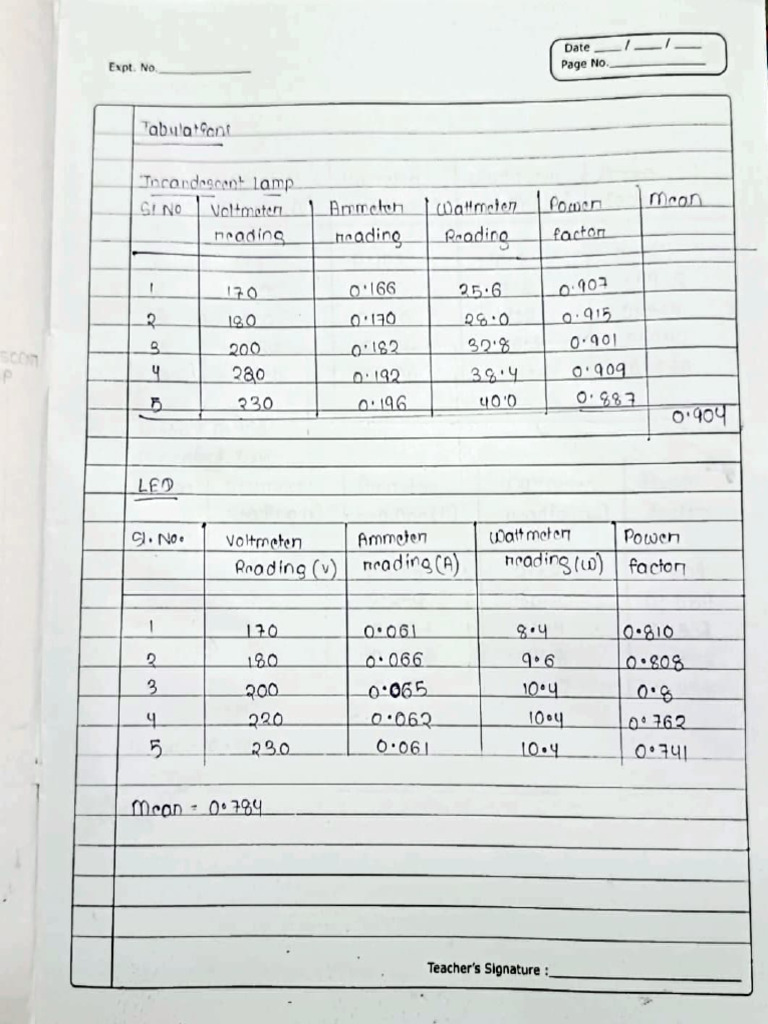 Expt. No.
Date ___/___/___
Page No.
Tabulations
Incandescent lamp
Sl No Voltmeter reading Ammeter reading Wattmeter Reading Power factor Mean
1 170 0.166 25.6 0.907
2 180 0.170 28.0 0.915
3 200 0.182 32.8 0.901
4 220 0.192 38.4 0.909
5 230 0.196 40.0 0.887
0.904
LED
Sl. No. Voltmeter Reading (V) Ammeter reading (A) Wattmeter reading (W) Power factor
1 170 0.061 8.4 0.810
2 180 0.066 9.6 0.808
3 200 0.065 10.4 0.8
4 220 0.062 10.4 0.762
5 230 0.061 10.4 0.741
Mean = 0.784
Teacher's Signature :